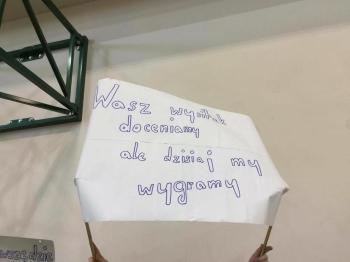 Wasz wysiłek
doceniamy
ale dzisiaj my
wygramy
wszędzie